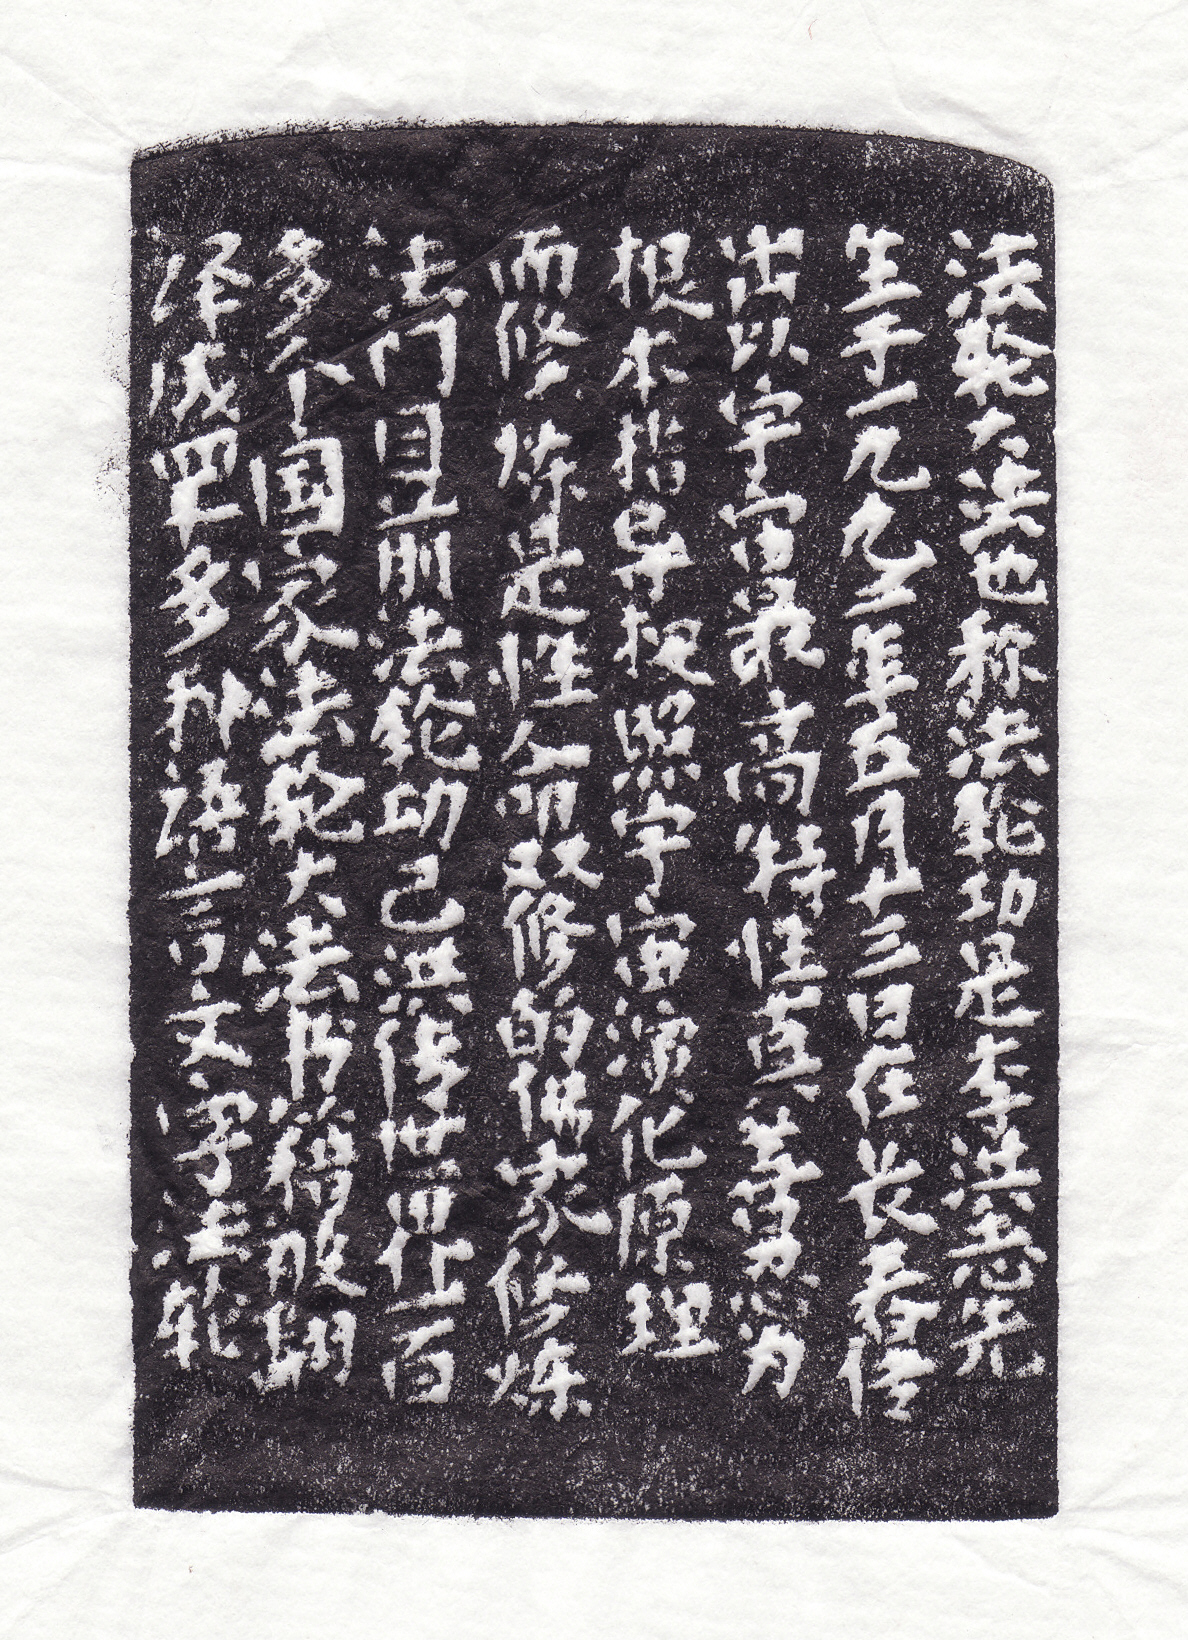 法轮大法也称法轮功是李洪志先
生于一九九二年五月十三日在长春传
出以宇宙最高特性真善忍为
根本指导按照宇宙演化原理
而修炼是性命双修的佛家修炼
法门目前法轮功已洪传世界上百
多个国家法轮大法书籍被翻
译成四十多种语言文字法轮